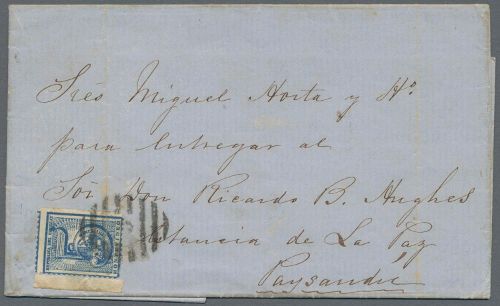 Sres Miguel Horta y Ho.
para entregar al
Sor. Don Ricardo B. Hughes
Estancia de La Paz
Paysandú